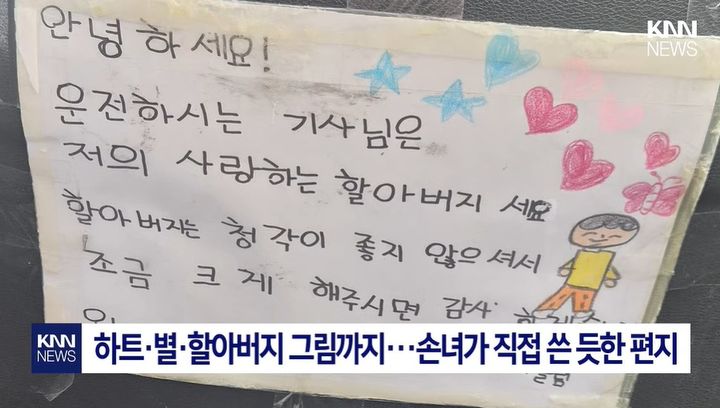 KNN
NEWS
안녕하세요!
운전하시는 기사님은
저의 사랑하는 할아버지 세요
할아버지는 청각이 좋지 않으셔서
조금 크게 해주시면 감사
KNN
NEWS
하트·별·할아버지 그림까지…손녀가 직접 쓴 듯한 편지